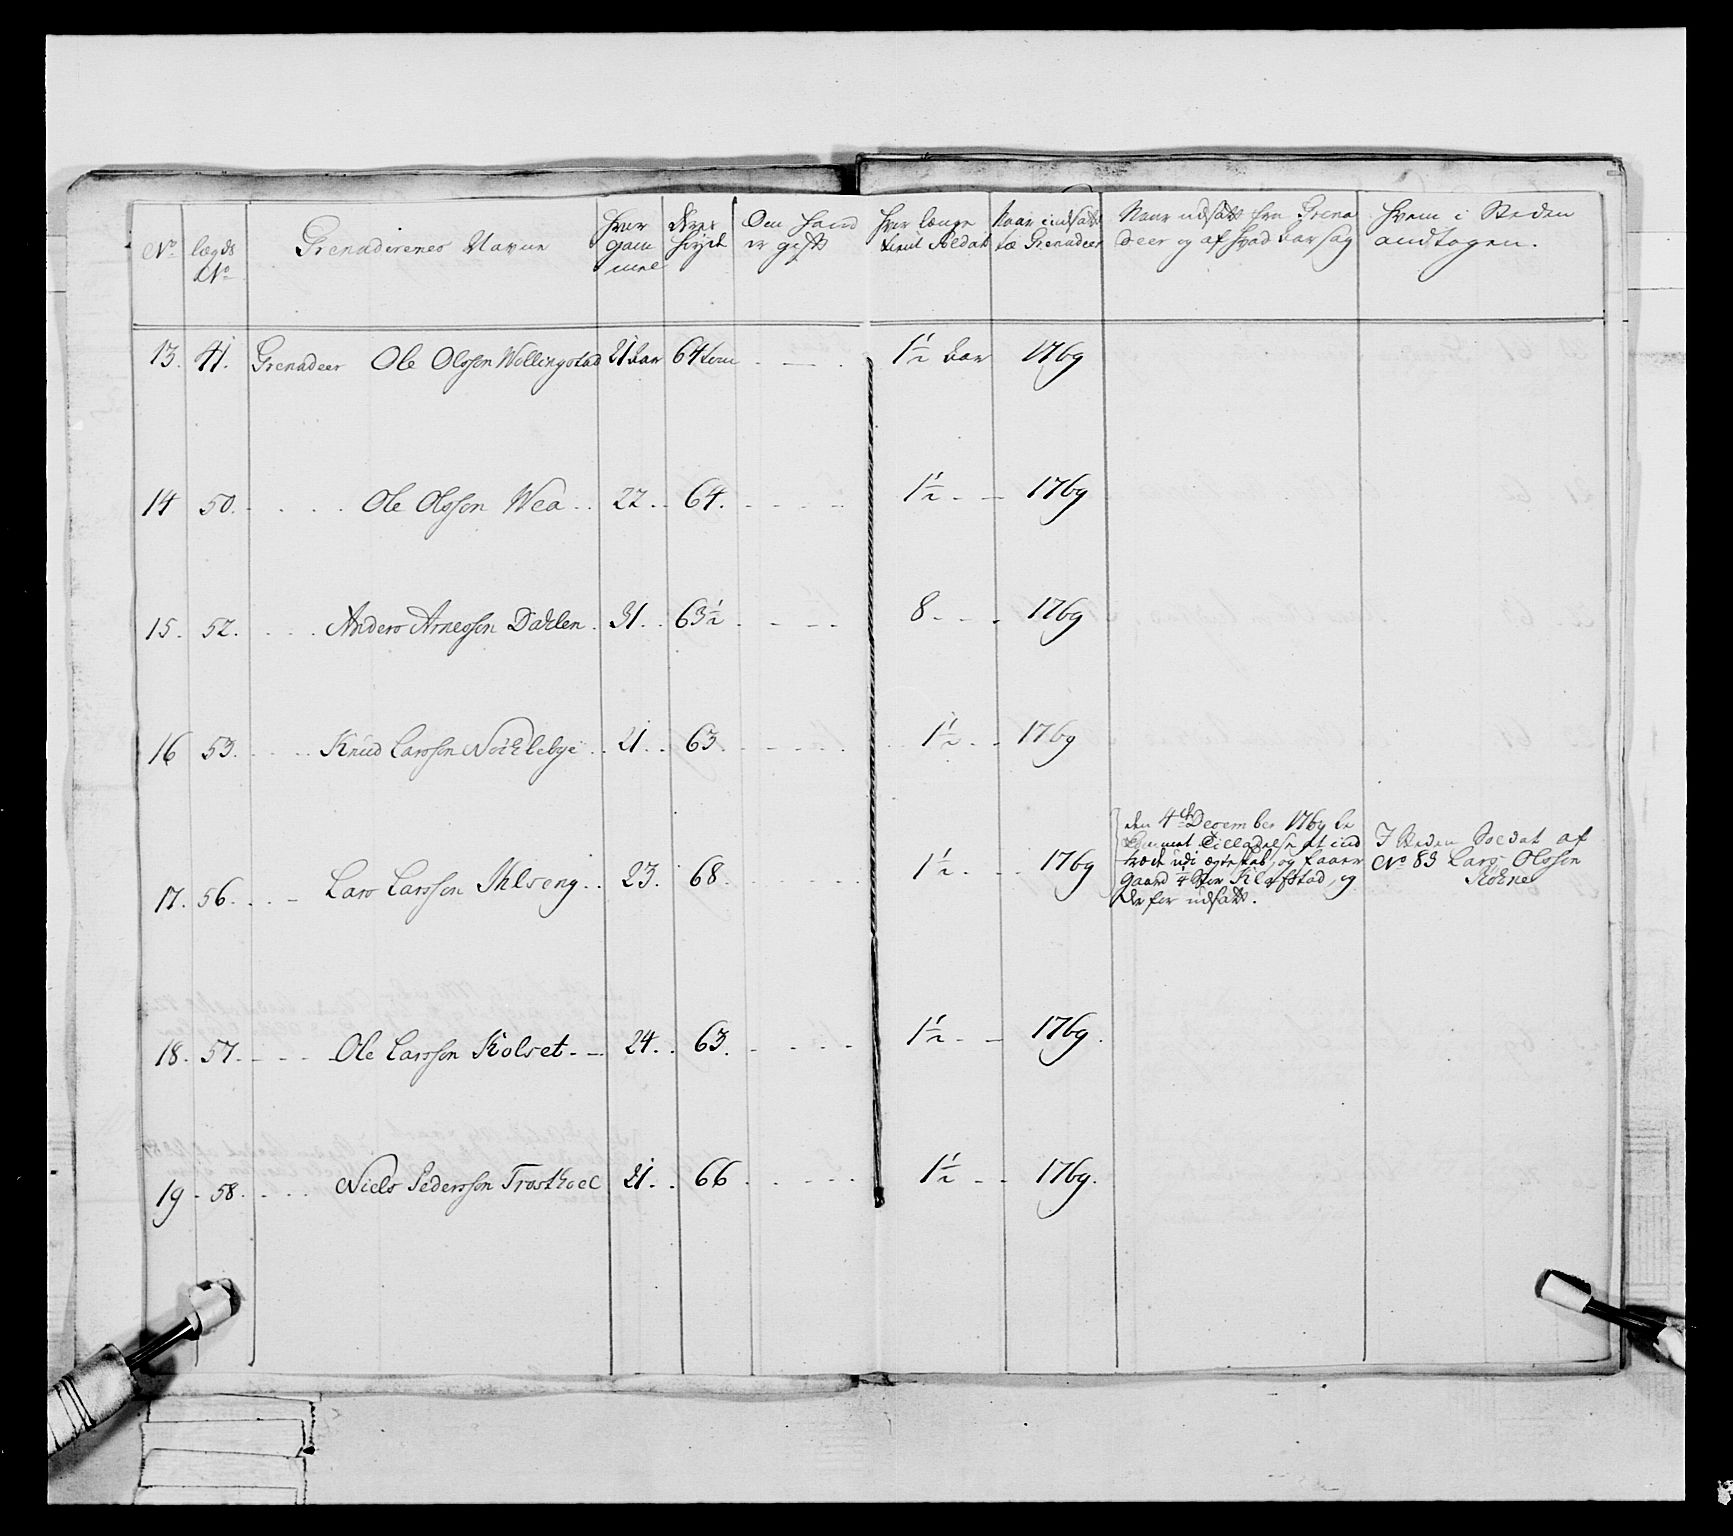 No
lægds No
Grenadirenes Navne
Hvor gam mel
Deres höyde
Om hand er gift
Hvor længe tient Soldat
Naar indsatt te Grenadeer
Naar udsatt fra Grena deer og af hvad Aarsag
Hvem i Steden andtagen.
13. 41. Grenadeer Ole Olsson Wollingstad 21 Aar 64 tom 1 1/2 Aar 1769
14 50. Ole Olsson Wea 22. 64. 1 1/2 1769
15. 52. Anders Arnesson Dahlen. 31. 63 1/2 8 1769
16 53. Knud Larsson Nöcklebye 21. 63. 1 1/2 1769
17. 56. Lars Larsson Ihlseng 23. 68. 1 1/2 1769
den 4de December 1769 be
kommet Tilladelse at ind
træde udi ægteskab, og faaer
Gaard Klæfstad, og
derfor udsatt.
I Steden Soldat af
No 83 Lars Olsson
18. 57. Ole Larsson Kolset 24. 63. 1 1/2 1769.
19 58. Niels Pedersson Trosthoel 21. 66 1 1/2 1769.